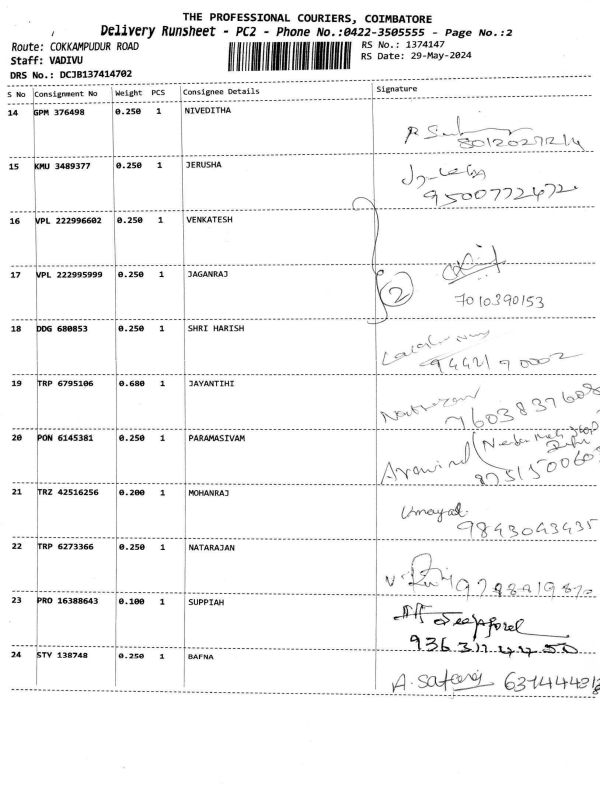 THE PROFESSIONAL COURIERS, COIMBATORE
Delivery Runsheet - PC2 - Phone No.:0422-3505555 - Page No.:2
Route: COKKAMPUDUR ROAD
RS No.: 1374147
Staff: VADIVU
RS Date: 29-May-2024
DRS No.: DCJB137414702
S No Consignment No Weight PCS Consignee Details Signature
14 GPM 376498 0.250 1 NIVEDITHA
8012027214
15 KMU 3489377 0.250 1 JERUSHA
9500772472
16 VPL 222996602 0.250 1 VENKATESH
17 VPL 222995999 0.250 1 JAGANRAJ
2
7010390153
18 DDG 680853 0.250 1 SHRI HARISH
9442190002
19 TRP 6795106 0.680 1 JAYANTIHI
20 PON 6145381 0.250 1 PARAMASIVAM
Aravind
21 TRZ 42516256 0.200 1 MOHANRAJ
Umayal
9843043435
22 TRP 6273366 0.250 1 NATARAJAN
23 PRO 16388643 0.100 1 SUPPIAH
24 STV 138748 0.250 1 BAFNA